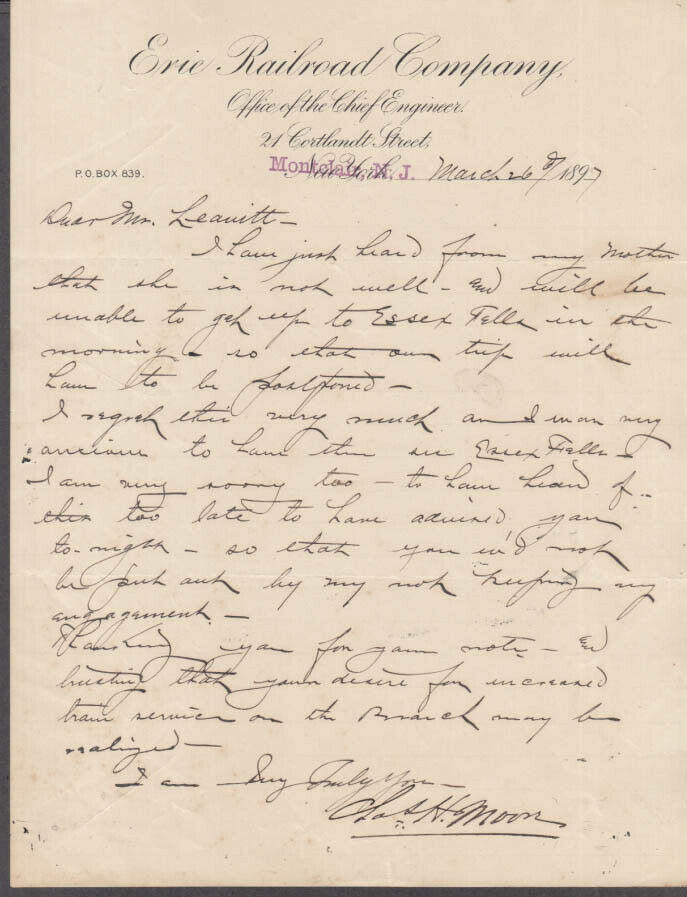 Erie Railroad Company,
Office of the Chief Engineer.
21 Cortlandt Street,
Montclair, N. J.
New York, March 26th 1897
P.O. BOX 839.
Dear Mr. Leavitt -
I have just heard from my Mother
that she is not well - and will be
unable to get up to Essex Fells in the
morning - so that our trip will
have to be postponed -
I regret this very much as I was very
anxious to have them see Essex Fells -
I am very sorry too - to have heard of
this too late to have advised you
to-night - so that you w'd not
be put out by my not keeping my
engagement. -
Thanking you for your note - and
trusting that your desire for increased
train service on the Branch may be
realized -
I am Very Truly Yours -
Chas H. Moore